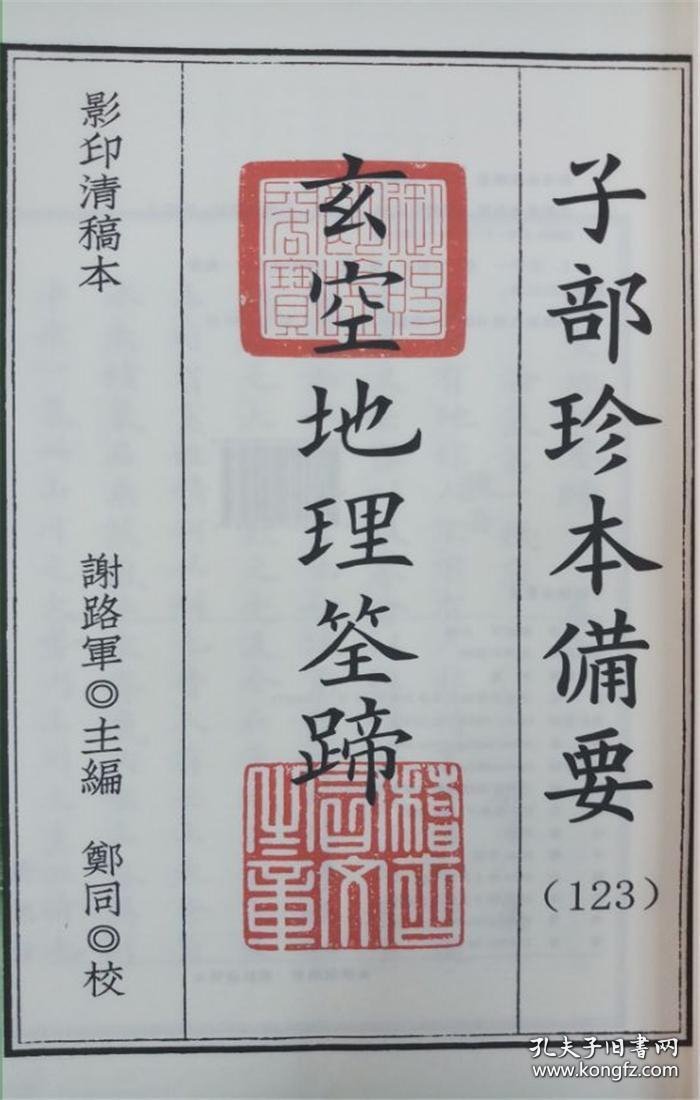 子部珍本備要
（123）
玄空地理筌蹄
稽古
右文
之章
影印清稿本
謝路軍◎主編 鄭同◎校
孔夫子旧书网
www.kongfz.com